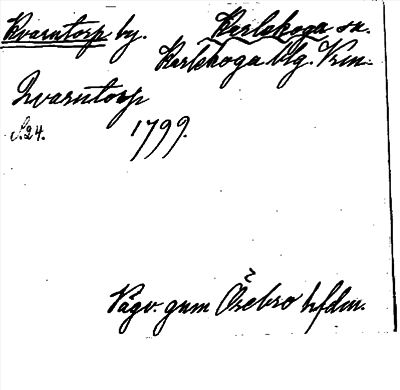 Kvarntorp by. Karlskoga sn.
Karlskoga blg. Vrm.
Qvarntorp
S.24. 1799.
Vägv. gnm Örebro hfdm.